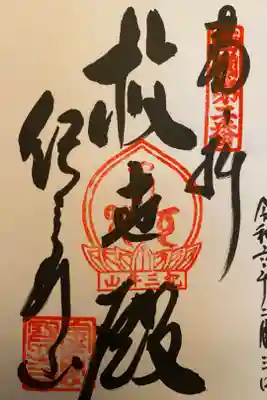 奉拝
令和六年二月三日
救世殿
紀三井山